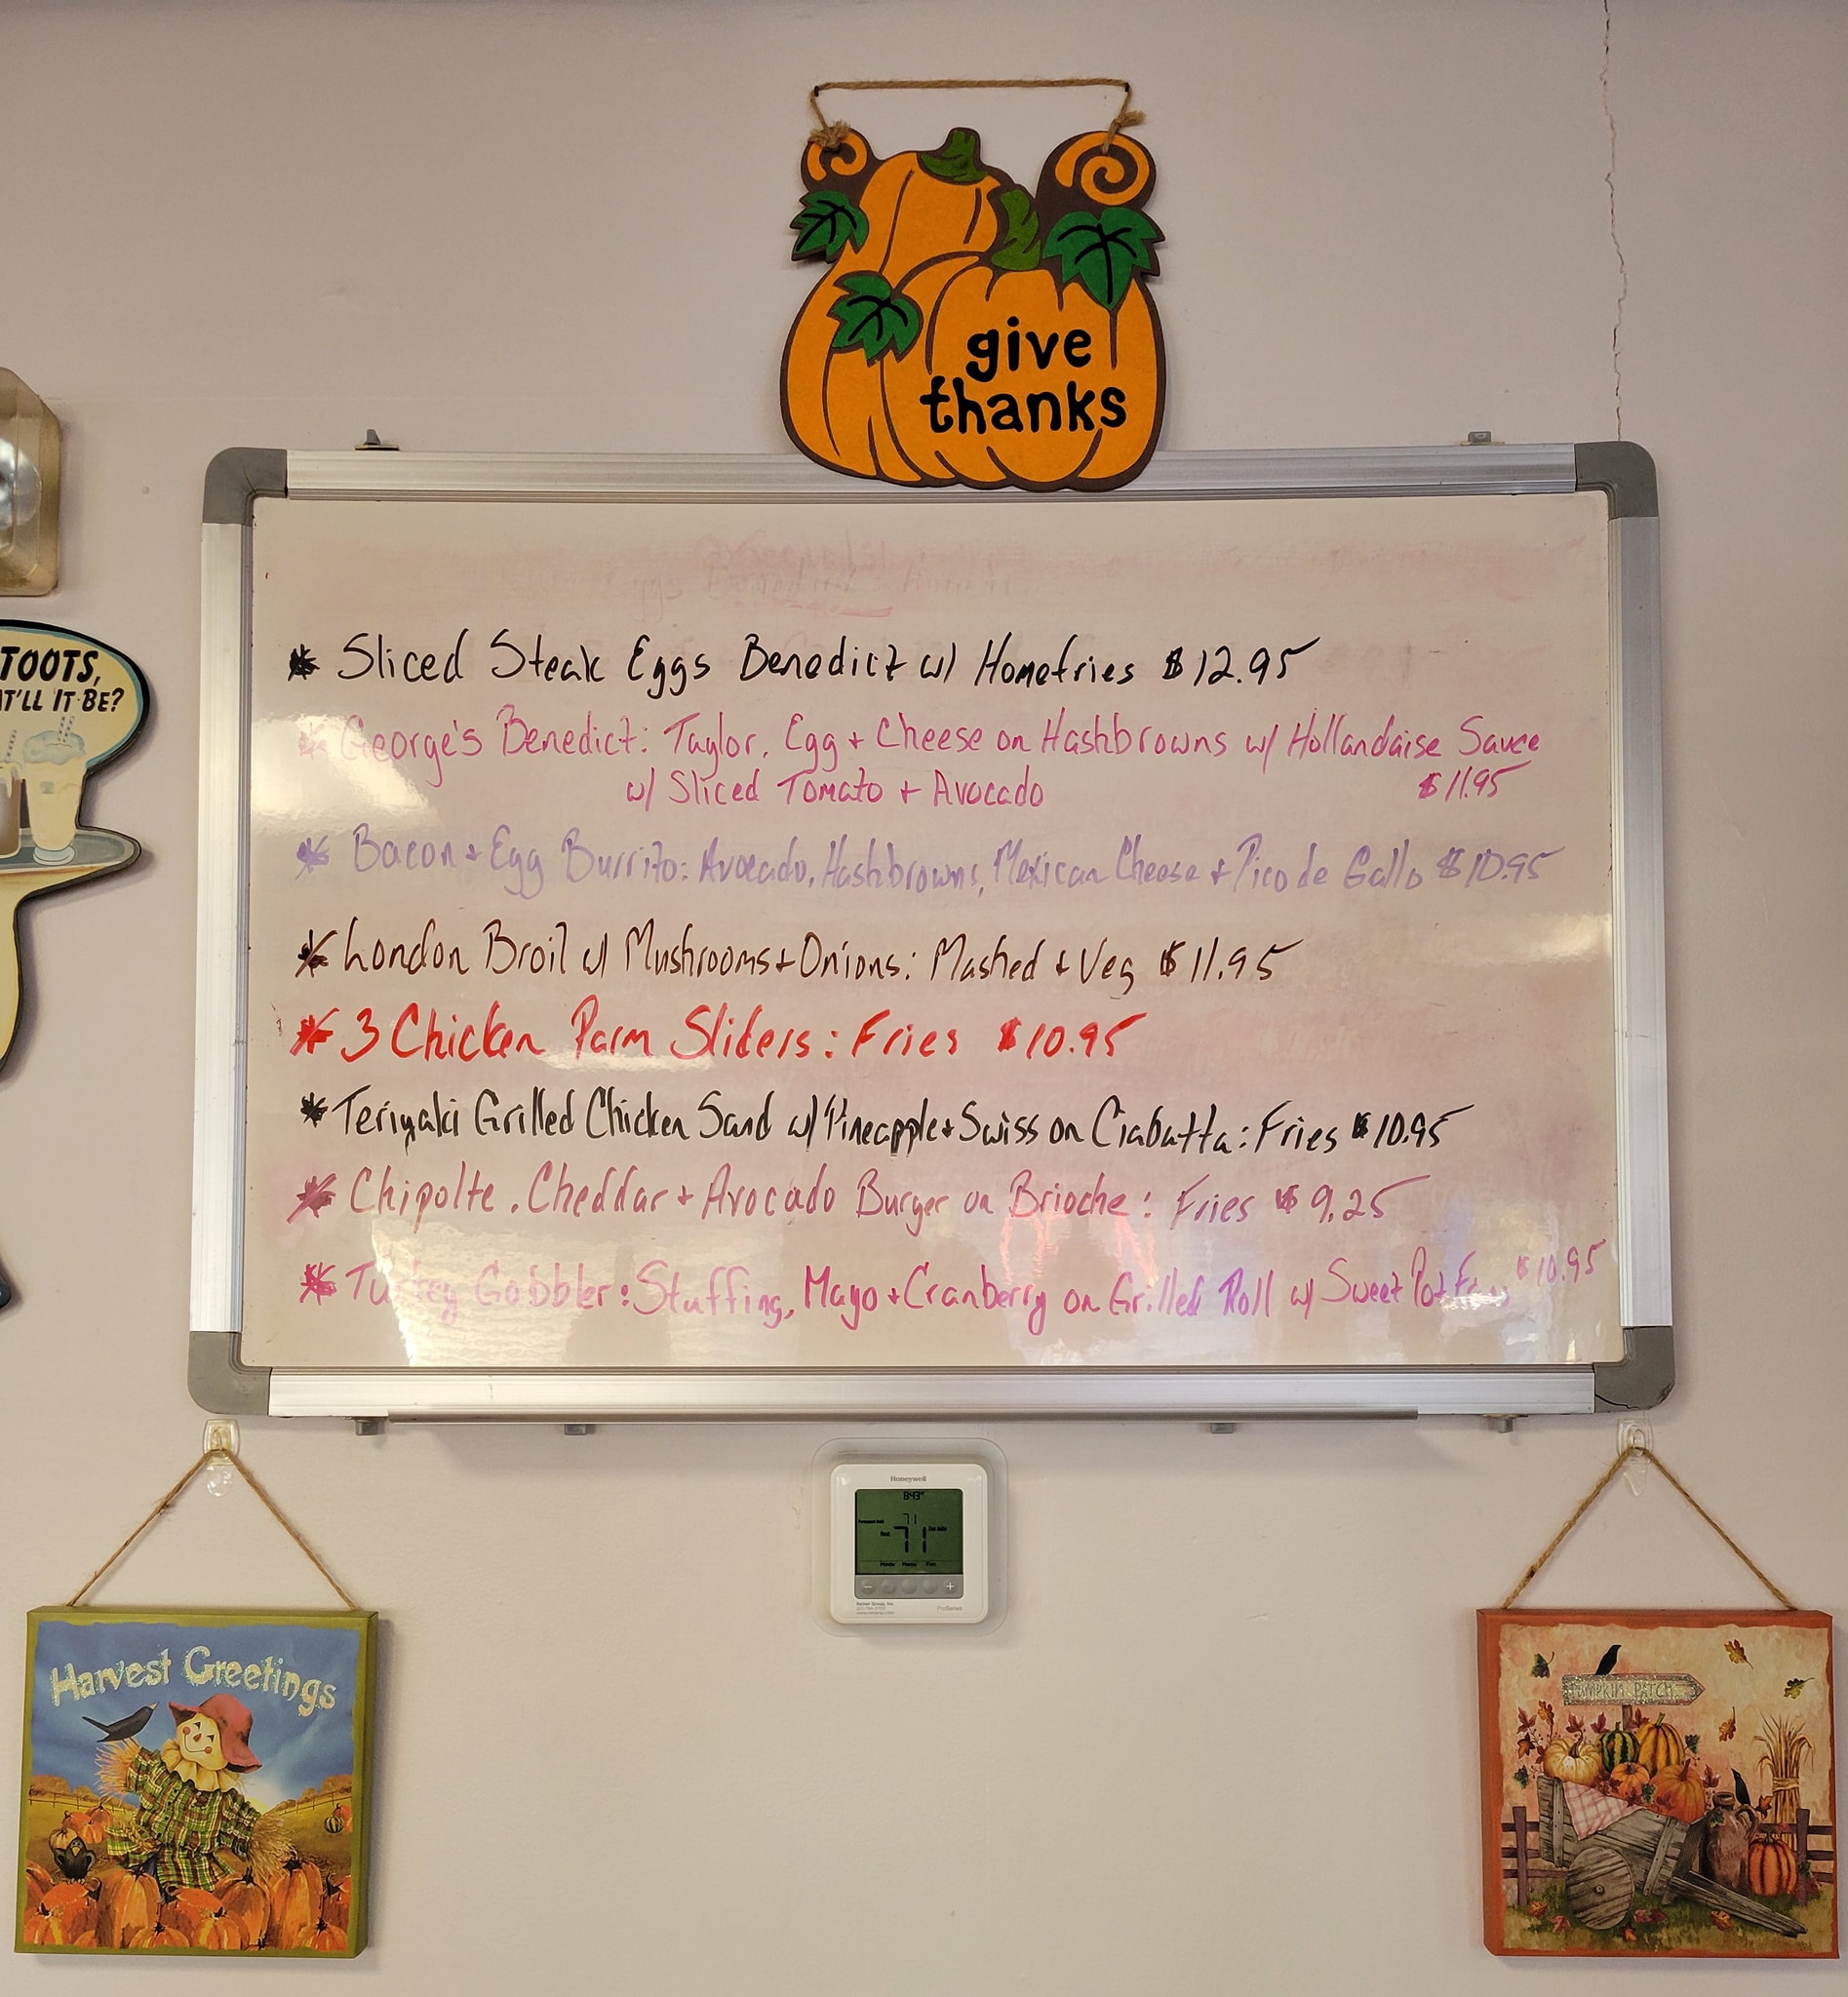 give
thanks
TOOTS,
AT'LL IT BE?
* Sliced Steak Eggs Benedict w/ Homefries $12.95
* George's Benedict: Taylor, Egg + Cheese on Hashbrowns w/ Hollandaise Sauce
w/ Sliced Tomato + Avocado $11.95
* Bacon + Egg Burrito: Avocado, Hashbrowns, Mexican Cheese + Pico de Gallo $10.95
* London Broil w/ Mushrooms + Onions: Mashed + Veg $11.95
* 3 Chicken Parm Sliders: Fries $10.95
* Teriyaki Grilled Chicken Sand w/ Pineapple + Swiss on Ciabatta: Fries $10.95
* Chipolte, Cheddar + Avocado Burger on Brioche: Fries $9.25
* Turkey Gobbler: Stuffing, Mayo + Cranberry on Grilled Roll w/ Sweet Pot Fries $10.95
Honeywell
8:43
71
71
ProSeries
Harvest Greetings
PUMPKIN PATCH